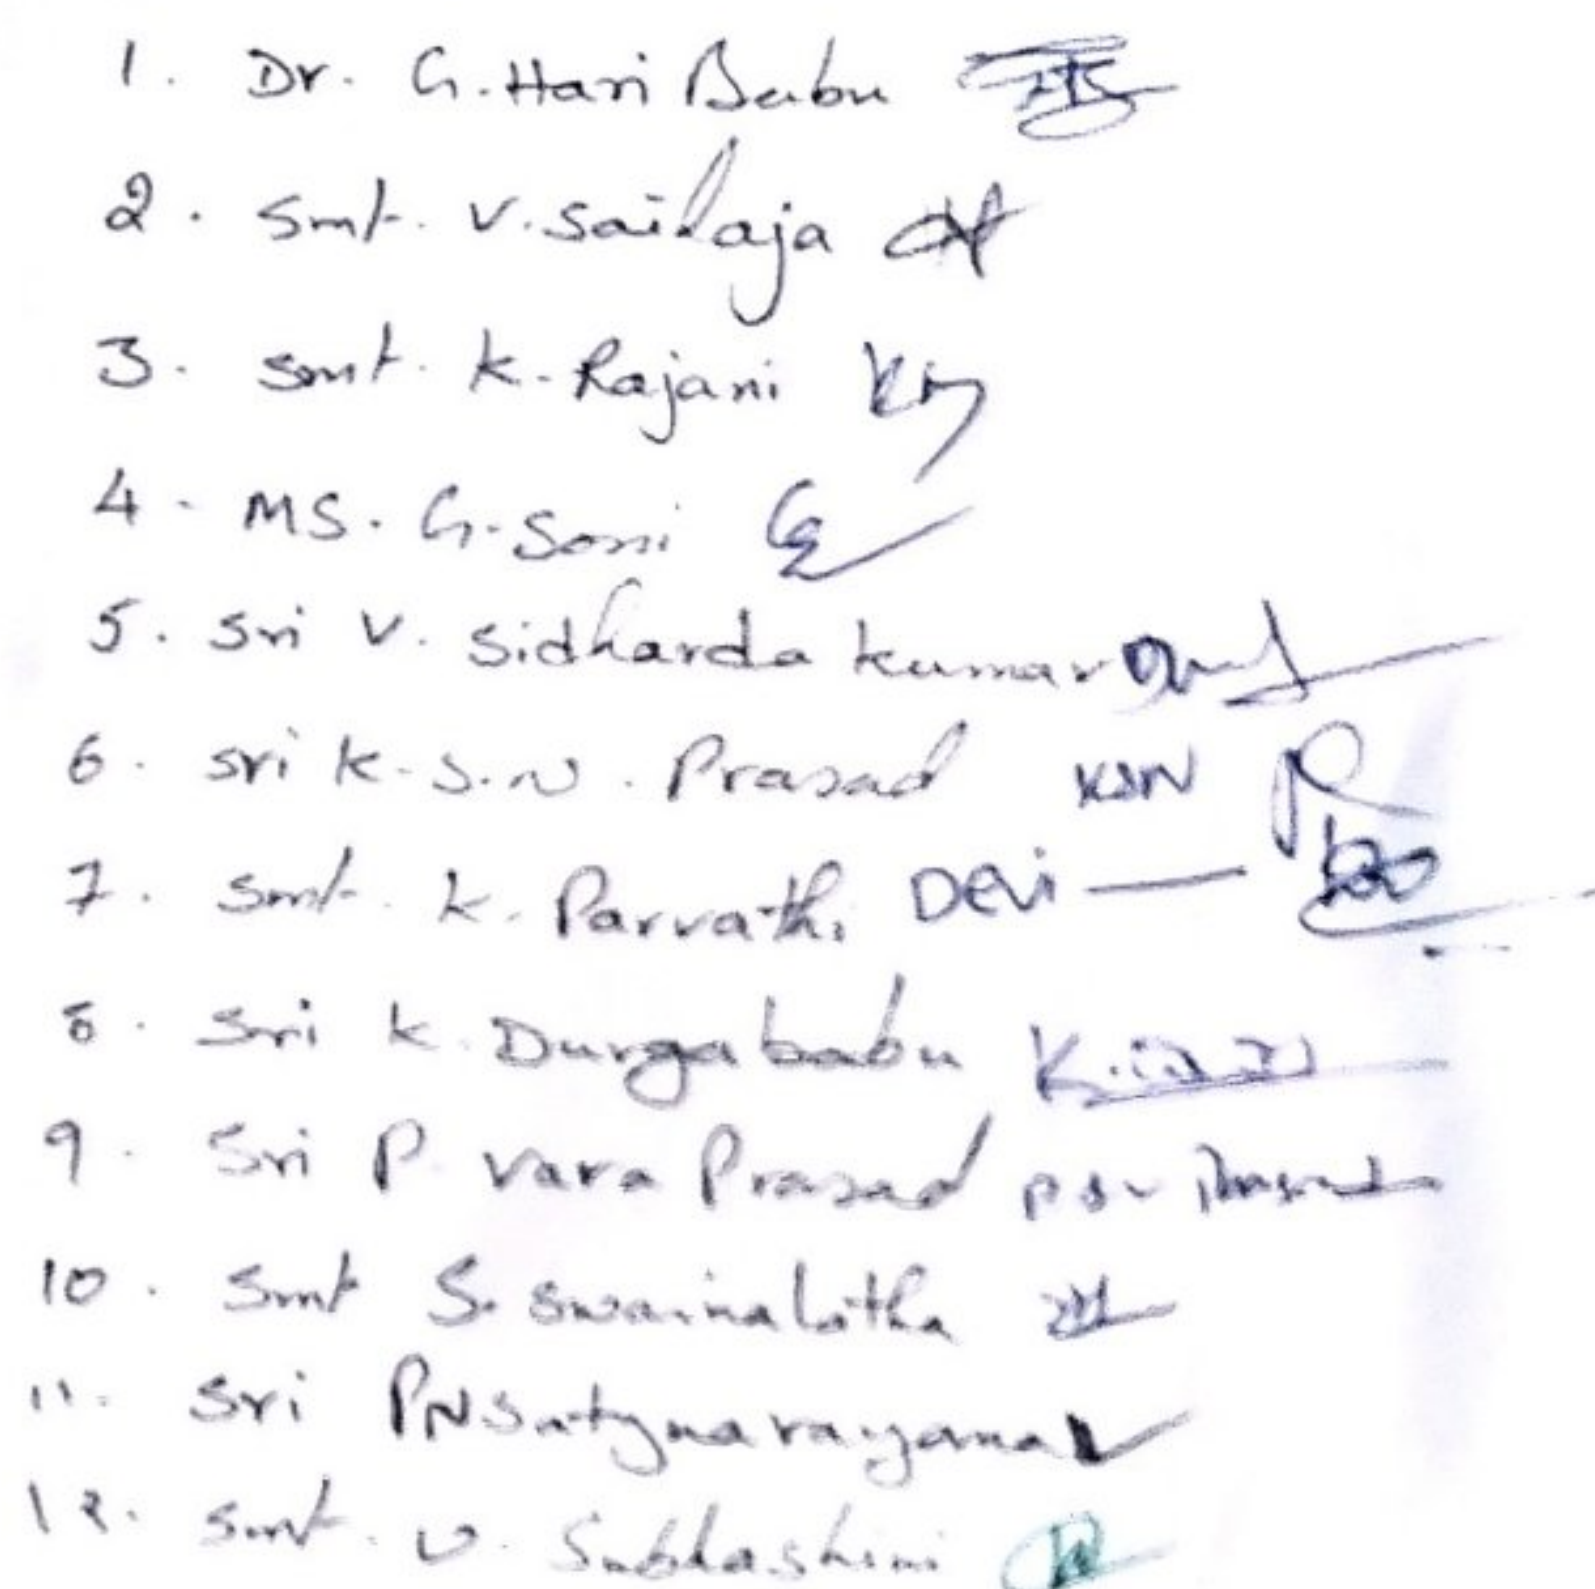 1. Dr. G. Hari Babu
2. Smt. V. Sailaja
3. Smt. K. Rajani
4. MS. G. Soni
5. Sri V. Sidharda kumar
6. Sri K. S. N. Prasad KSN P
7. Smt. K. Parvathi Devi —
8. Sri K. Durgababu
9. Sri P. Vara Prasad
10. Smt S. Swarnalatha
11. Sri PNSatynarayana
12. Smt. V. Subhashini